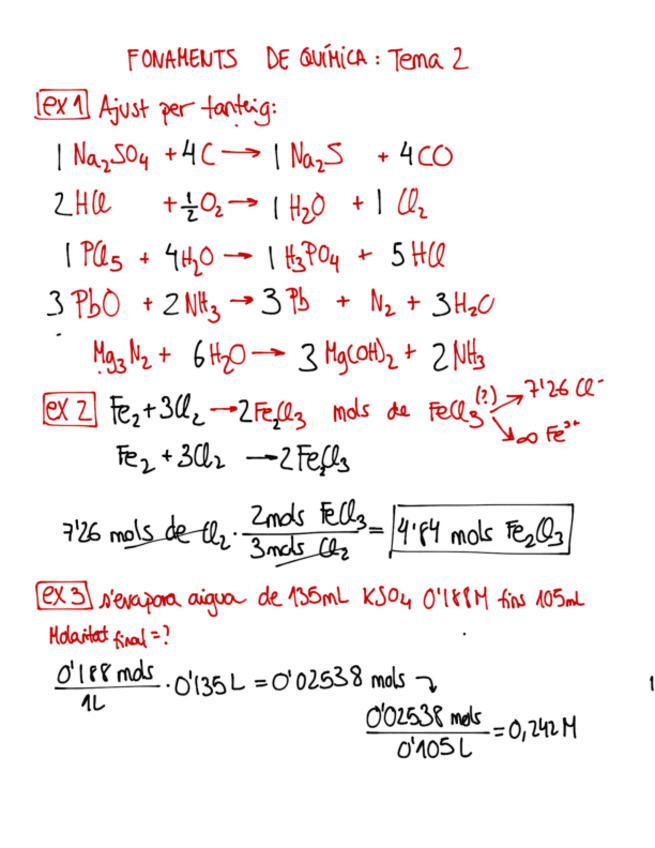 FONAMENTS DE QUÍMICA: Tema 2
ex 1 Ajust per tanteig:
1 Na₂SO₄ + 4C → 1 Na₂S + 4CO
2HCl + ½O₂ → 1 H₂O + 1 Cl₂
1 PCl₅ + 4H₂O → 1 H₃PO₄ + 5HCl
3 PbO + 2NH₃ → 3 Pb + N₂ + 3H₂O
Mg₃N₂ + 6H₂O → 3 Mg(OH)₂ + 2NH₃
ex 2 Fe₂ + 3Cl₂ → 2Fe₂Cl₃ mols de FeCl₃ (?) → 7'26 Cl⁻
↘ ∞ Fe³⁺
Fe₂ + 3Cl₂ → 2FeCl₃
7'26 mols de Cl₂ · 2mols FeCl₃ / 3mols Cl₂ = 4'84 mols Fe₂Cl₃
ex 3 s'evapora aigua de 135mL KSO₄ 0'188M fins 105mL
Molaritat final = ?
0'188 mols / 1L · 0'135L = 0'02538 mols
0'02538 mols / 0'105L = 0,242M
1